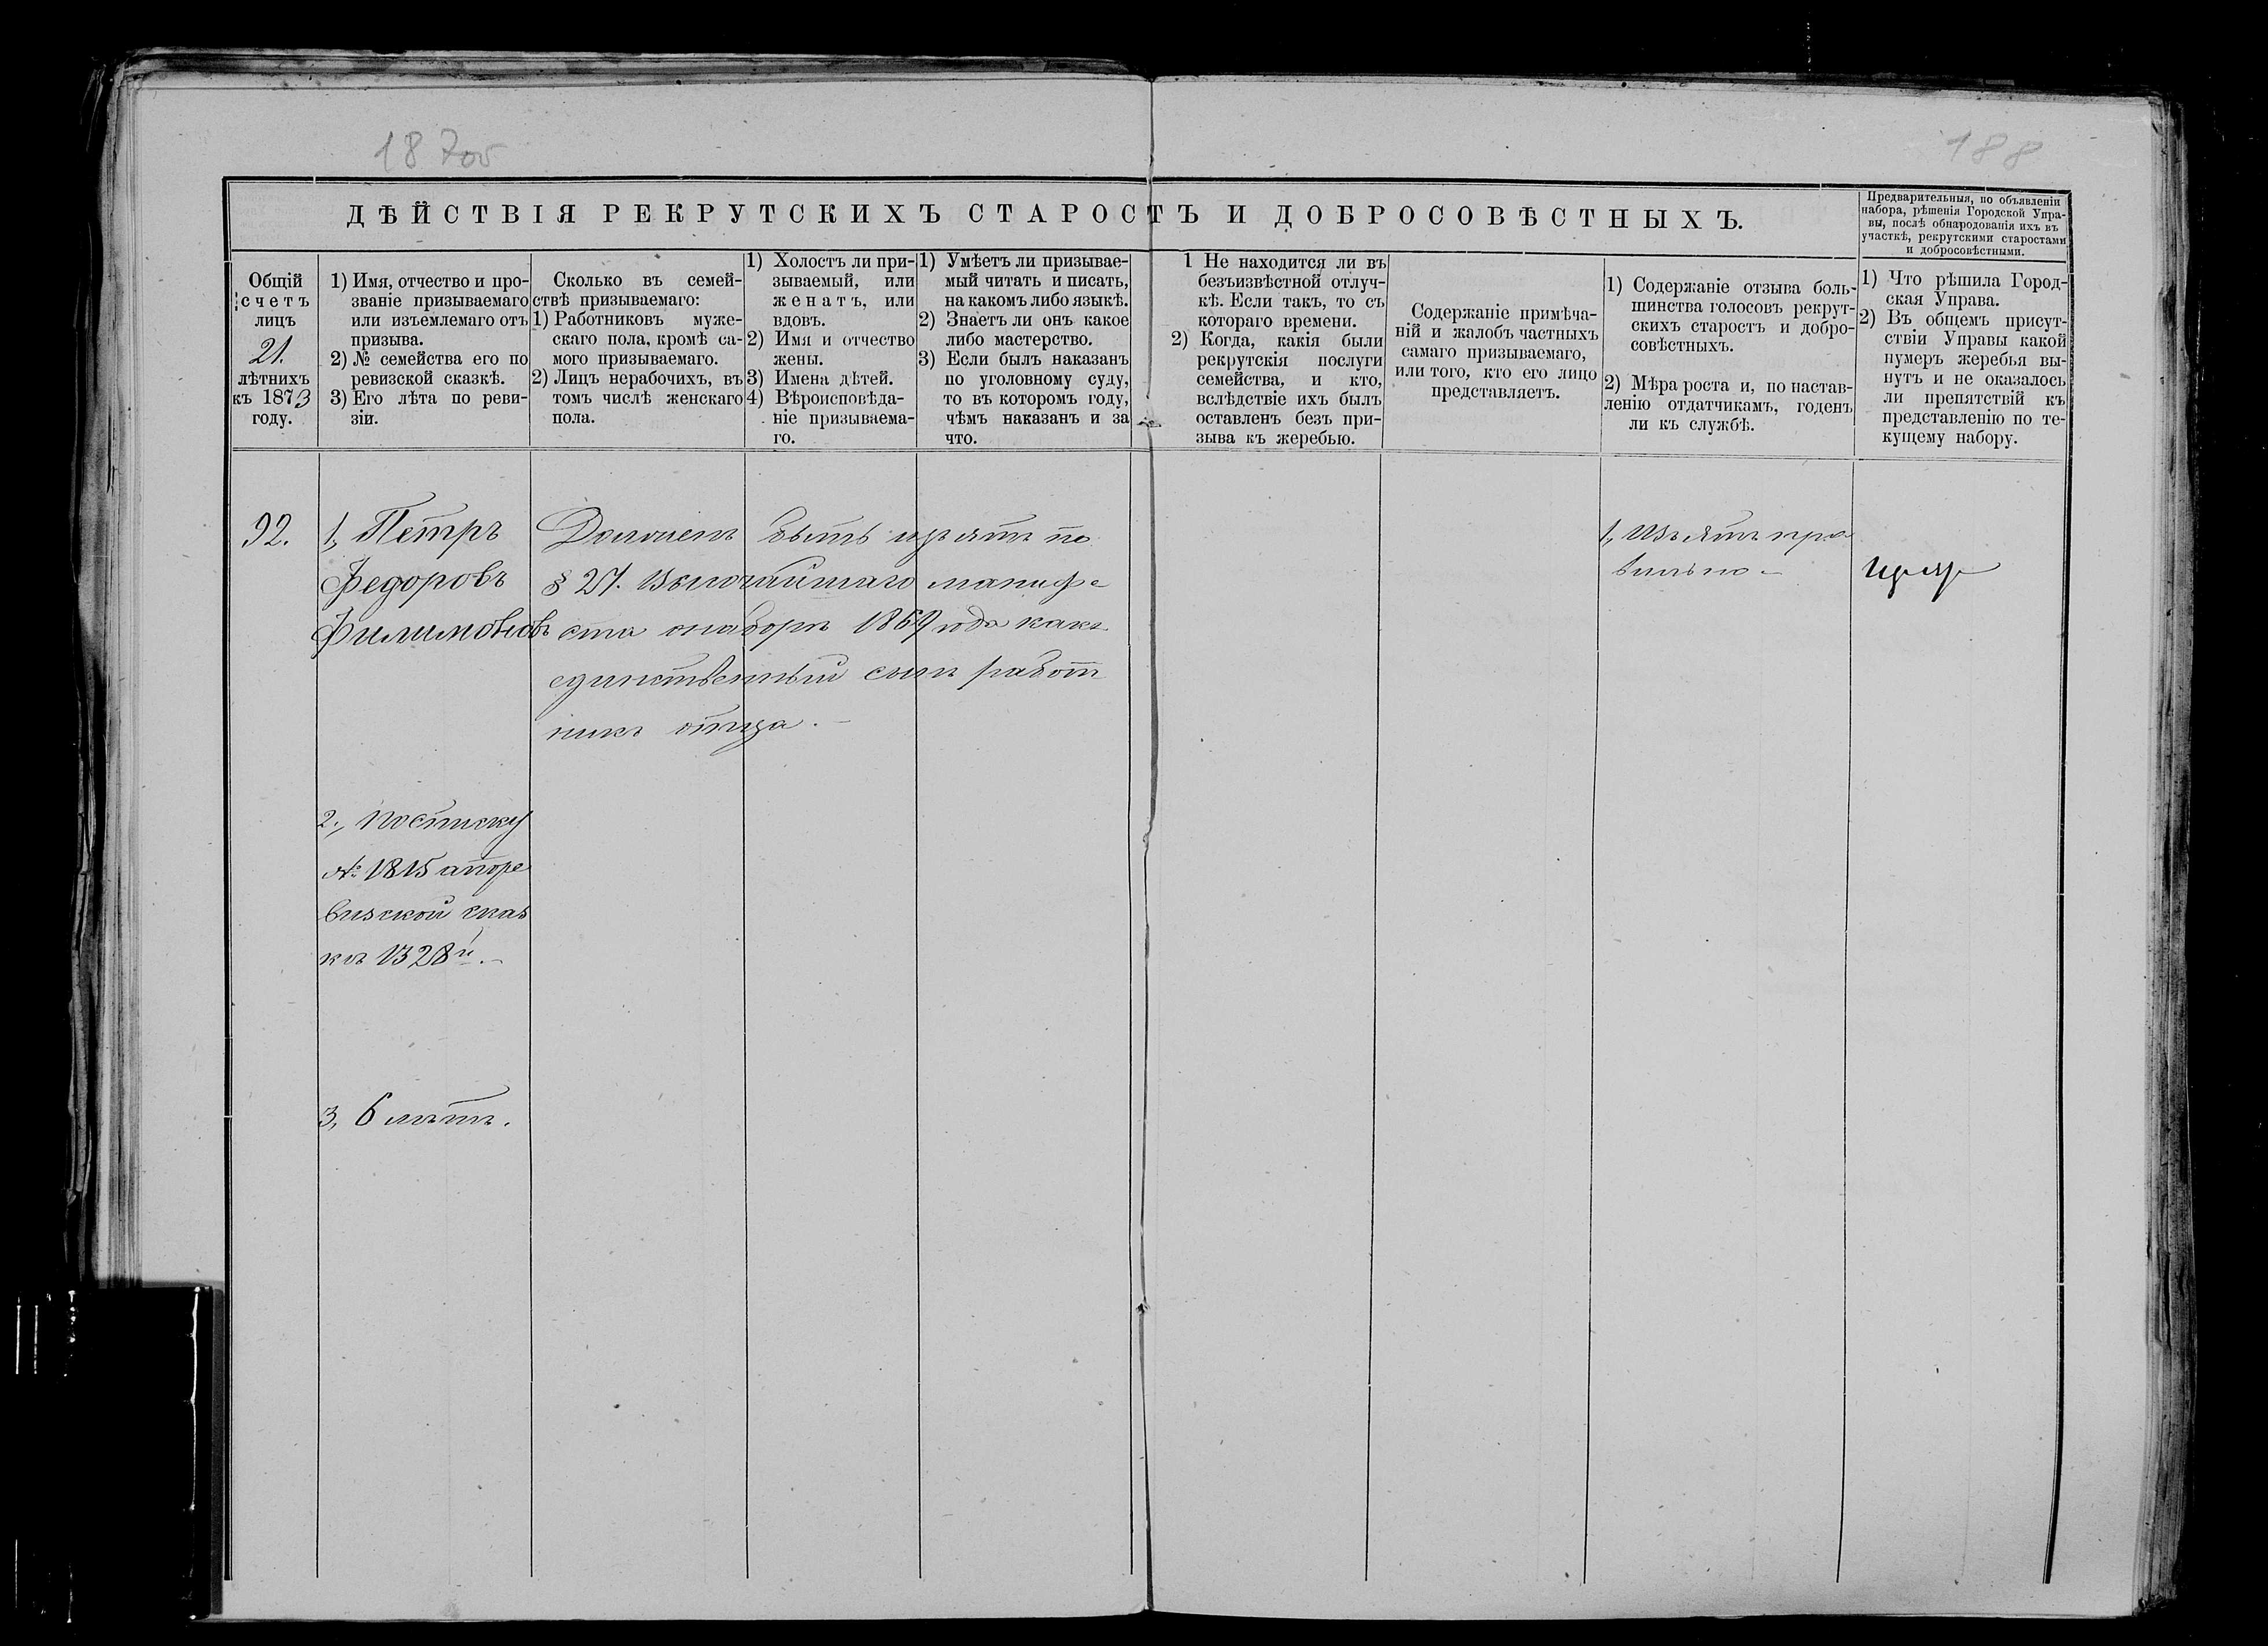 187об
188
ДѢЙСТВІЯ РЕКРУТСКИХЪ СТАРОСТЪ И ДОБРОСОВѢСТНЫХЪ.
Предварительныя, по объявленіи
набора, рѣшенія Городской Упра-
вы, послѣ обнародованія ихъ въ
участкѣ, рекрутскими старостами
и добросовѣстными.
Общій
счетъ
лицъ
21.
лѣтнихъ
къ 1873
году.
1) Имя, отчество и про-
званіе призываемаго
или изъемлемаго отъ
призыва.
2) № семейства его по
ревизской сказкѣ.
3) Его лѣта по реви-
зіи.
Сколько въ семей-
ствѣ призываемаго:
1) Работниковъ муже-
скаго пола, кромѣ са-
мого призываемаго.
2) Лицъ нерабочихъ, въ
томъ числѣ женскаго
пола.
1) Холостъ ли при-
зываемый, или
женатъ, или
вдовъ.
2) Имя и отчество
жены.
3) Имена дѣтей.
4) Вѣроисповѣда-
ніе призываема-
го.
1) Умѣетъ ли призывае-
мый читать и писать,
на какомъ либо языкѣ.
2) Знаетъ ли онъ какое
либо мастерство.
3) Если былъ наказанъ
по уголовному суду,
то въ которомъ году,
чѣмъ наказанъ и за
что.
1 Не находится ли въ
безъизвѣстной отлуч-
кѣ. Если такъ, то съ
котораго времени.
2) Когда, какія были
рекрутскія послуги
семейства, и кто,
вслѣдствіе ихъ былъ
оставленъ безъ при-
зыва къ жеребью.
Содержаніе примѣча-
ній и жалобъ частныхъ
самаго призываемаго,
или того, кто его лицо
представляетъ.
1) Содержаніе отзыва боль-
шинства голосовъ рекрут-
скихъ старостъ и добро-
совѣстныхъ.
2) Мѣра роста и, по настав-
ленію отдатчикамъ, годенъ
ли къ службѣ.
1) Что рѣшила Город-
ская Управа.
2) Въ общемъ присут-
ствіи Управы какой
нумеръ жеребья вы-
нутъ и не оказалось
ли препятствій къ
представленію по те-
кущему набору.
92.
1, Петръ
Федоровъ
Филимоновъ
2, по списку
№ 1815 а по ре
визской сказ
кѣ 1328й.–
3, 6 лѣтъ.
Долженъ быть изъятъ по
§ 27. Высочайшаго манифе
ста о наборѣ 1869 года какъ
единственный сынъ работ
никъ отца.–
1, Изъятъ пра
вильно –